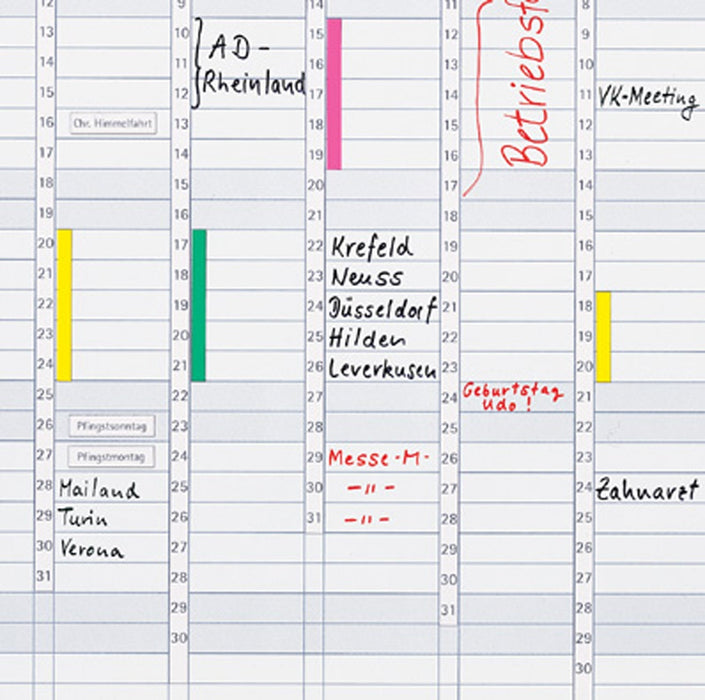 12
13
14
15
16 Chr. Himmelfahrt
17
18
19
20
21
22
23
24
25
26 Pfingstsonntag
27 Pfingstmontag
28 Mailand
29 Turin
30 Verona
31
9
10 AD-
11 Rheinland
12
13
14
15
16
17
18
19
20
21
22
23
24
25
26
27
28
29
30
14
15
16
17
18
19
20
21
22 Krefeld
23 Neuss
24 Düsseldorf
25 Hilden
26 Leverkusen
27
28
29 Messe-M-
30 -"-
31 -"-
11
12
13
14
15
16
17
18
19
20
21
22
23
24 Geburtstag
Udo!
25
26
27
28
29
30
31
8
9
10
11 VK-Meeting
12
13
14
15
16
17
18
19
20
21
22
23
24 Zahnarzt
25
26
27
28
29
30